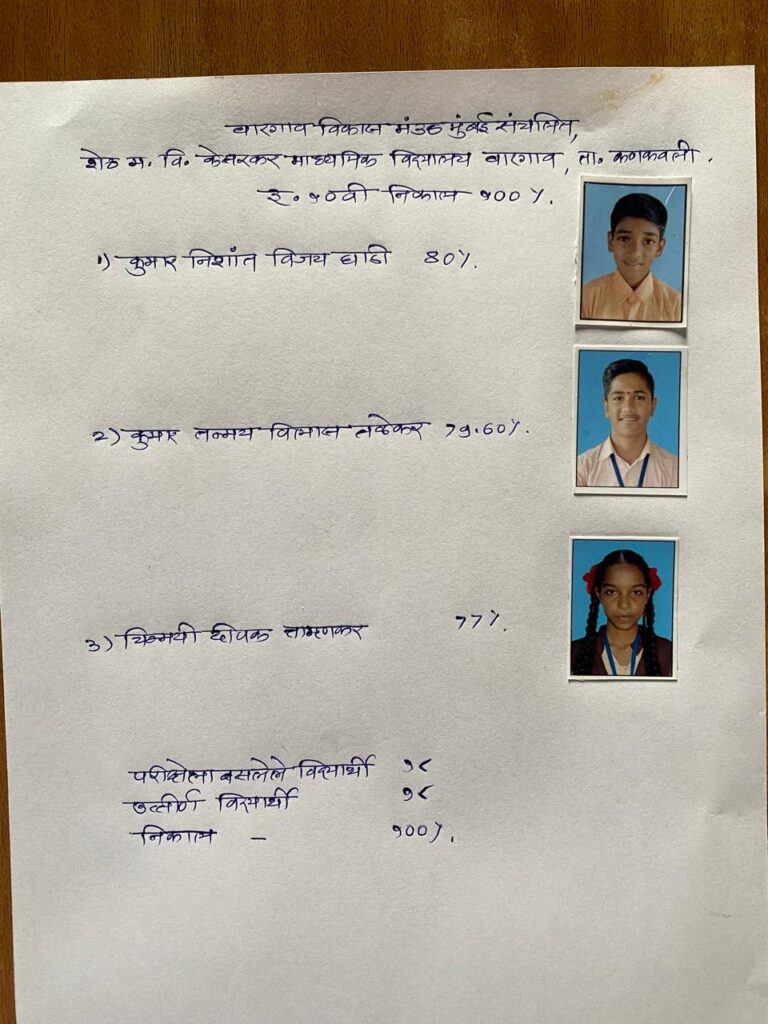 वारगाव विकास मंडळ मुंबई संचलित,
शेठ म. वि. केसरकर माध्यमिक विद्यालय वारगाव, ता. कणकवली.
इ. १०वी निकाल १००%.
१) कुमार निशांत विजय घाडी 80%.
2) कुमार तन्मय विलास तळेकर 79.60%.
3) चिन्मयी दीपक 77%.
परीक्षेला बसलेले विद्यार्थी १८
उत्तीर्ण विद्यार्थी १८
निकाल - १००%.